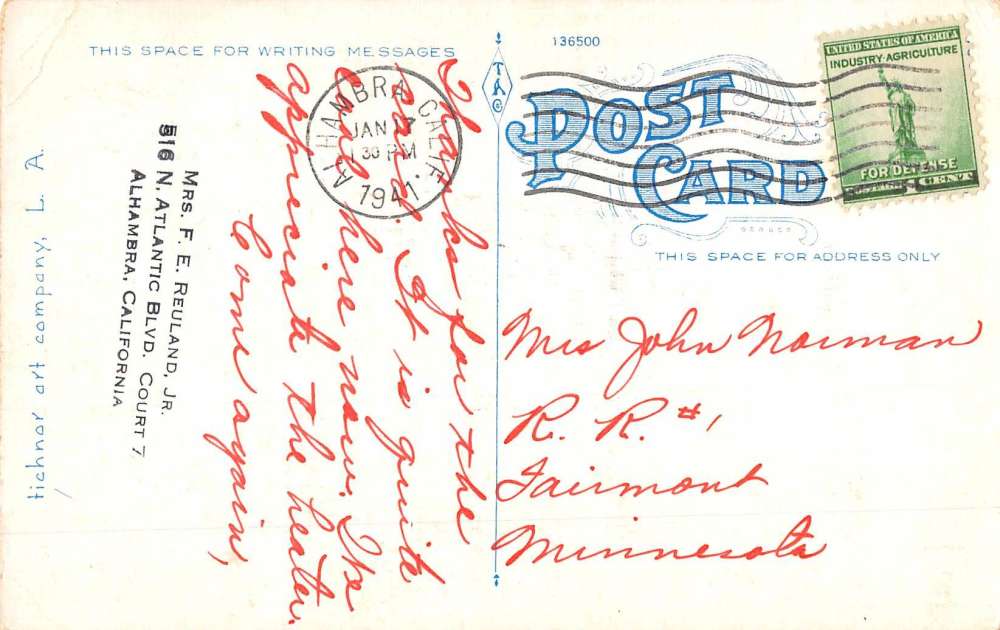 THIS SPACE FOR WRITING MESSAGES
136500
TAC
POST
CARD
THIS SPACE FOR ADDRESS ONLY
UNITED STATES OF AMERICA
INDUSTRY·AGRICULTURE
FOR DEFENSE
1 CENT 1
ALHAMBRA, CALIF.
JAN 17
1 30 PM
1941
Thanks for the
card. It is quite
cool here now. We
appreciate the heater.
Come again,
MRS. F. E. REULAND, JR.
516 N. ATLANTIC BLVD. COURT 7
ALHAMBRA, CALIFORNIA
tichnor art company, L. A.
Mrs John Norman
R. R. #1
Fairmont
Minnesota